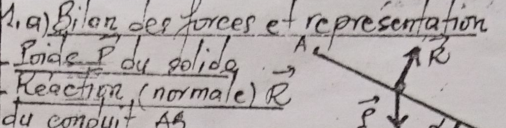 1.a) Bilan des forces et représentation
- Poids P⃗ du solide
- Réaction (normale) R⃗
du conduit AB
A
R⃗
P⃗
α